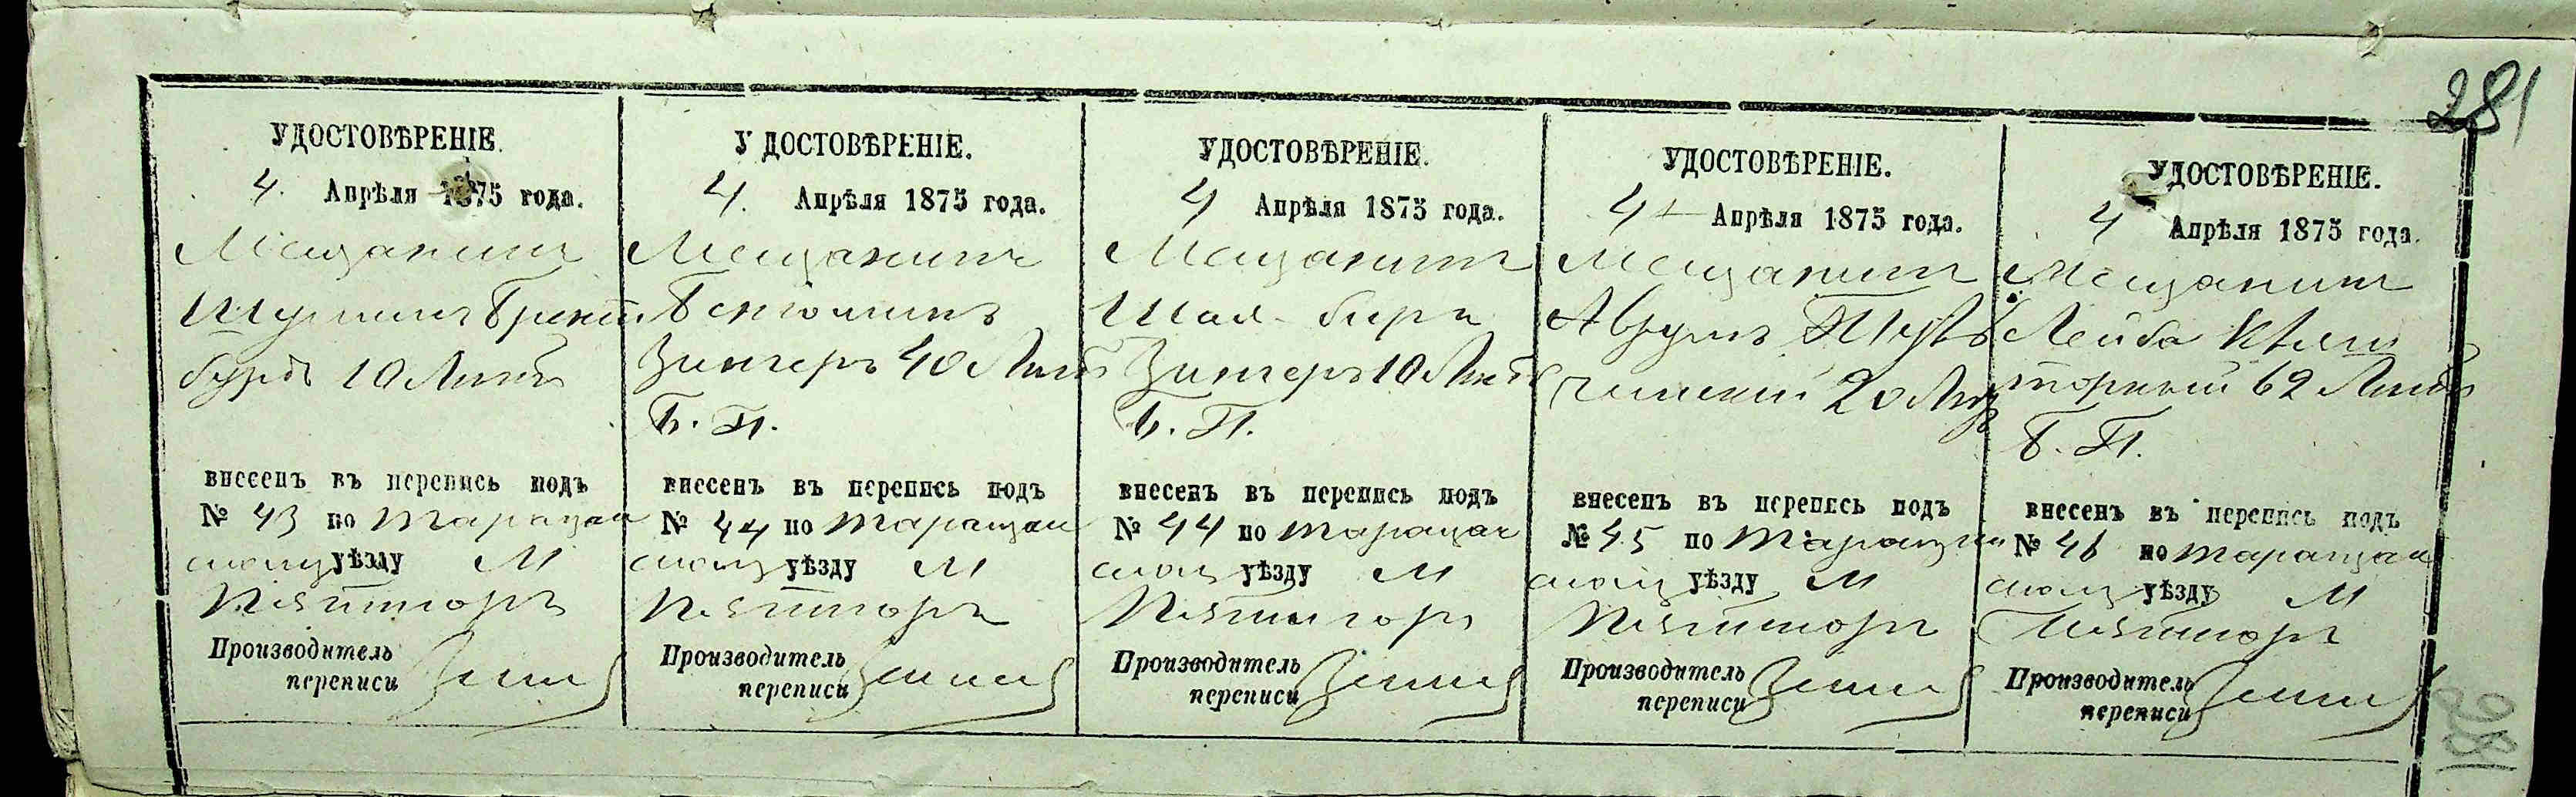 281
УДОСТОВѢРЕНІЕ.
4. Апрѣля 1875 года.
Мещанинъ
бурдъ 10 Лѣтъ
внесенъ въ перепись подъ
№ 43 по Таращан
скому уѣзду М
Пятигоръ
Производитель
переписи
УДОСТОВѢРЕНІЕ.
4. Апрѣля 1875 года.
Мещанинъ
Беніоминъ
Зингеръ 40 Лѣтъ
Б. П.
внесенъ въ перепись подъ
№ 44 по Таращан
скому уѣзду М
Пятигоръ
Производитель
переписи
УДОСТОВѢРЕНІЕ.
4 Апрѣля 1875 года.
Мещанинъ
Зингеръ 10 Лѣтъ
Б. П.
внесенъ въ перепись подъ
№ 44 по Таращан
скому уѣзду М
Пятигоръ
Производитель
переписи
УДОСТОВѢРЕНІЕ.
4 Апрѣля 1875 года.
Мещанинъ
Аврумъ
20
внесенъ въ перепись подъ
№ 45 по Таращан
скому уѣзду М
Пятигоръ
Производитель
переписи
УДОСТОВѢРЕНІЕ.
4 Апрѣля 1875 года.
Мещанинъ
Лейба
62 Лѣтъ
Б. П.
внесенъ въ перепись подъ
№ 46 по Таращан
скому уѣзду М
Пятигоръ
Производитель
переписи
281